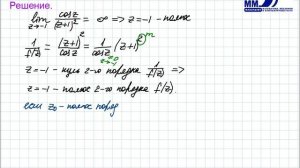 Решение.
lim z→-1 cos z/(z+1)² = ∞ => z=-1 - полюс
1/f(z) = (z+1)²/cos z = 1/cos z (z+1)² m
z=-1 - нуль 2-го порядка 1/f(z) =>
z=-1 - полюс 2-го порядка f(z)
если z₀ - полюс поряд
ММ